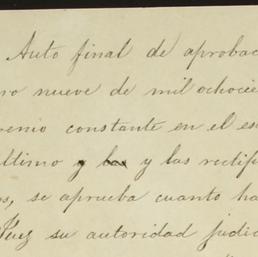 Auto final de aprobac
ro nueve de mil ochocie
renio constante en el es
ltimo y las y las rectif
s, se aprueba cuanto ha
Juz su autoridad judic